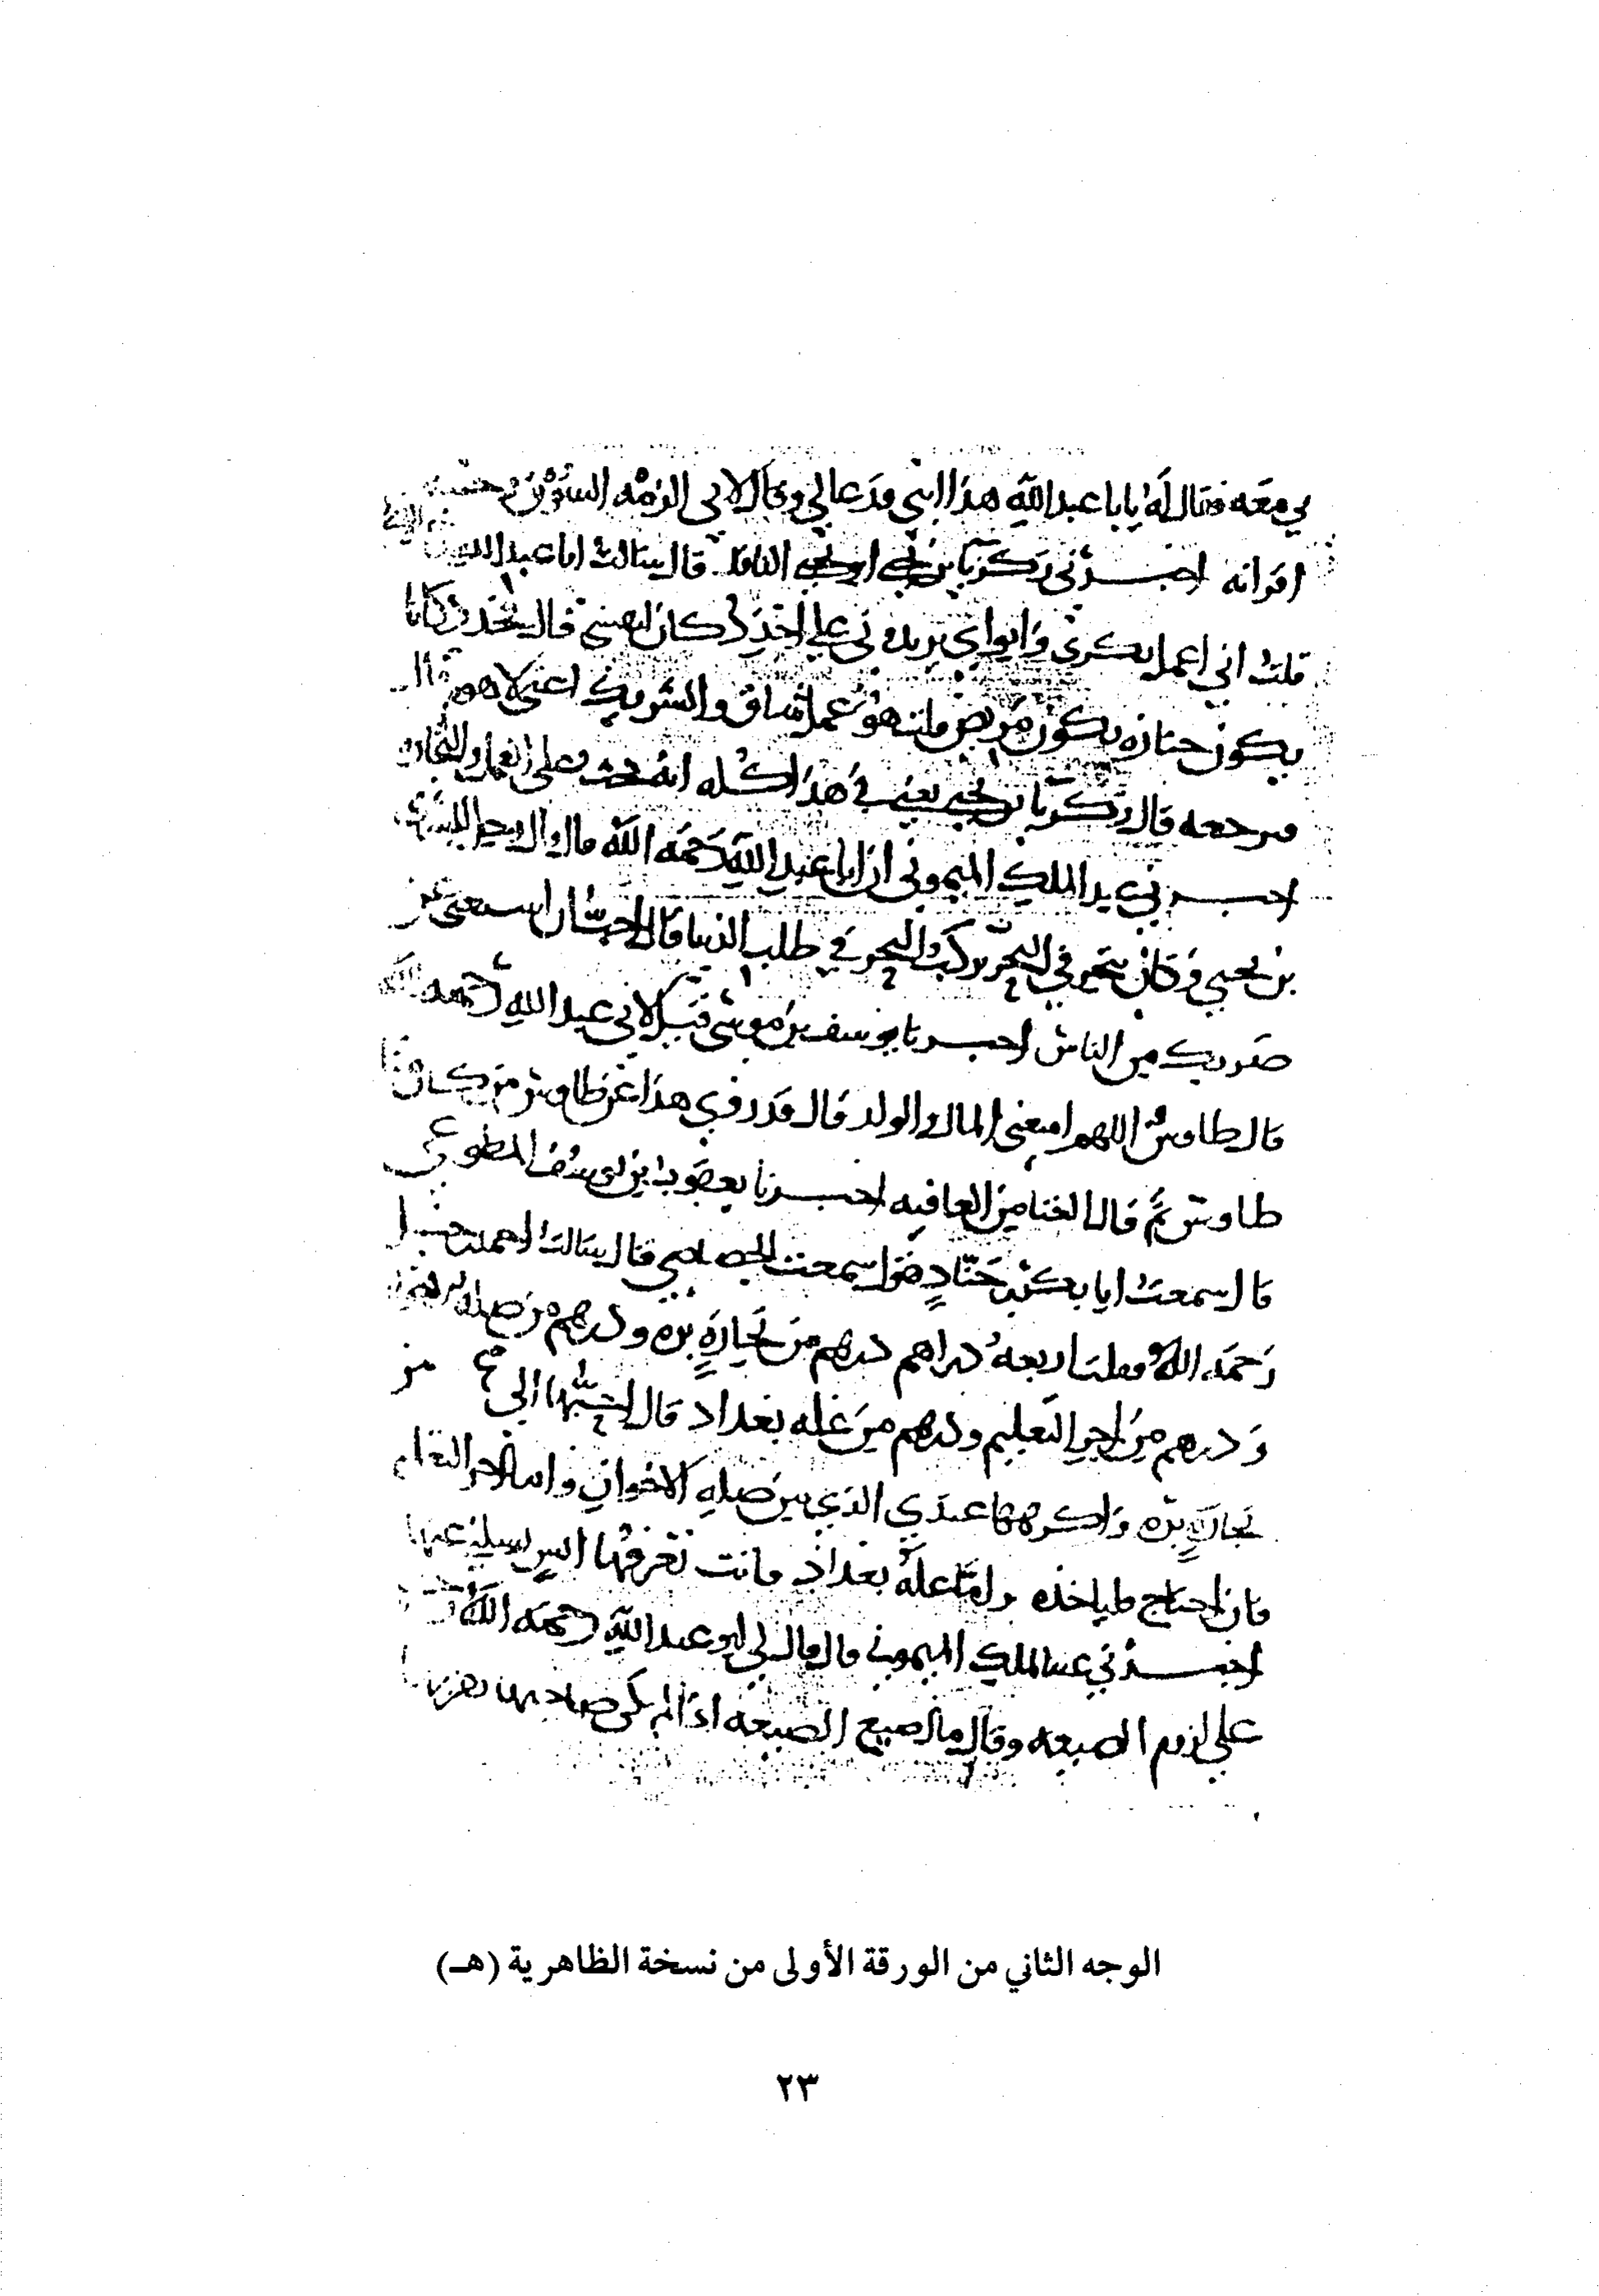 بي معه فقال له يا با عبد الله هذا ابني فدعا لي وقال لابي الزمه السوق وجنبه
اقرانه اخبرني زكريا بن يحيى ابو يحيى الناقد قال سالت ابا عبد الله
قلت اني اعمل بكرى وابواي يريدوني على
يكون جنازه يكون مريض قلت هو عمل شاق والشريك
قال زكريا بن يحيى يعني في هذا كله انه يحث على العمل والتجاره
اخبرني عبد الملك الميموني ان ابا عبد الله رحمه الله قال
بن يحيى وكان يتجر في البحر يركب البحر في طلب الدنيا قال احب ان استغني عن
ضربك من الناس اخبرنا يوسف بن موسى قيل لابي عبد الله رحمه الله
قال طاوس اللهم امنعني المال والولد قال قد روي هذا عن طاوس من
طاوس ثم قال الغنا من العافيه اخبرنا يعقوب بن يوسف المطوعي
قال سمعت ابا بكر بن حناد يقول سمعت الجصاصي قال سالت احمد بن حنبل
رحمه الله فقلت اربعه دراهم درهم من تجارة بره ودرهم من صله الاخوان
ودرهم من اجر التعليم ودرهم من غله بغداد قال احبها الي من
تجارة بره واكرهها عندي الذي من صله الاخوان واما اجر التعليم
فان احتاج فلياخذه واما غله بغداد فانت تعرفها ايش تسلني عنها
اخبرني عبد الملك الميموني قال قال لي ابو عبد الله رحمه الله
على لزوم الضيعه وقال ما اضيع الضيعه اذا لم يكن صاحبها بقربها
الوجه الثاني من الورقة الأولى من نسخة الظاهرية (هـ)
٢٣